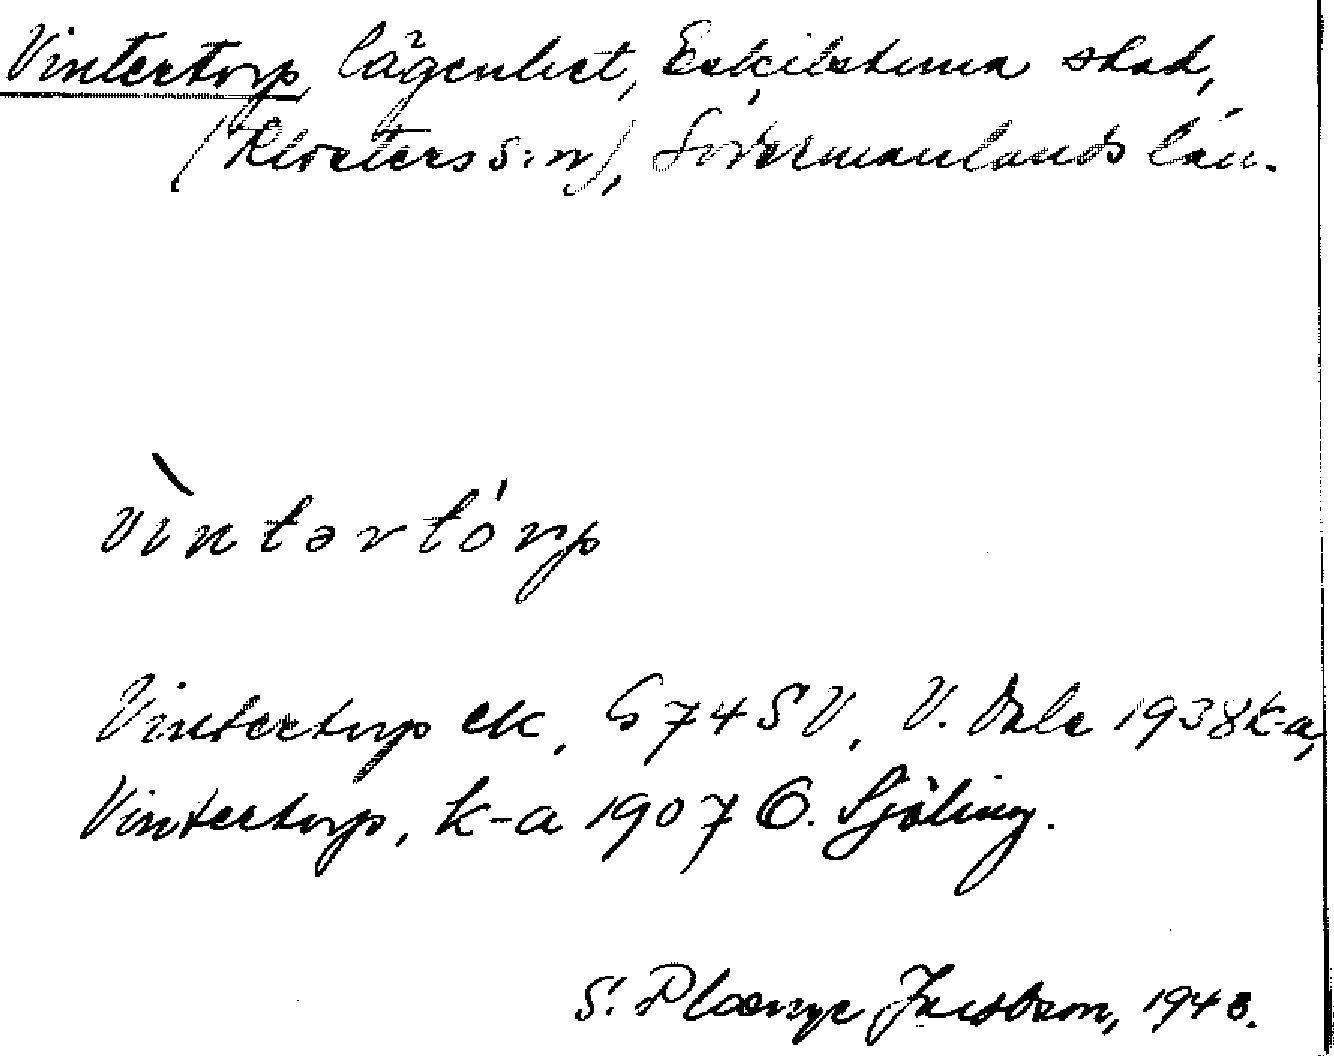 Vintertorp, lägenhet, Eskilstuna stad,
(Klosters s:n), Södermanlands län.
vìntərtórp
Vintertorp ek, G 74 SV, V. Dala 1938 k-a,
Vintertorp, k-a 1907 O. Sjöling.
S. Plænge Jacobson, 1948.